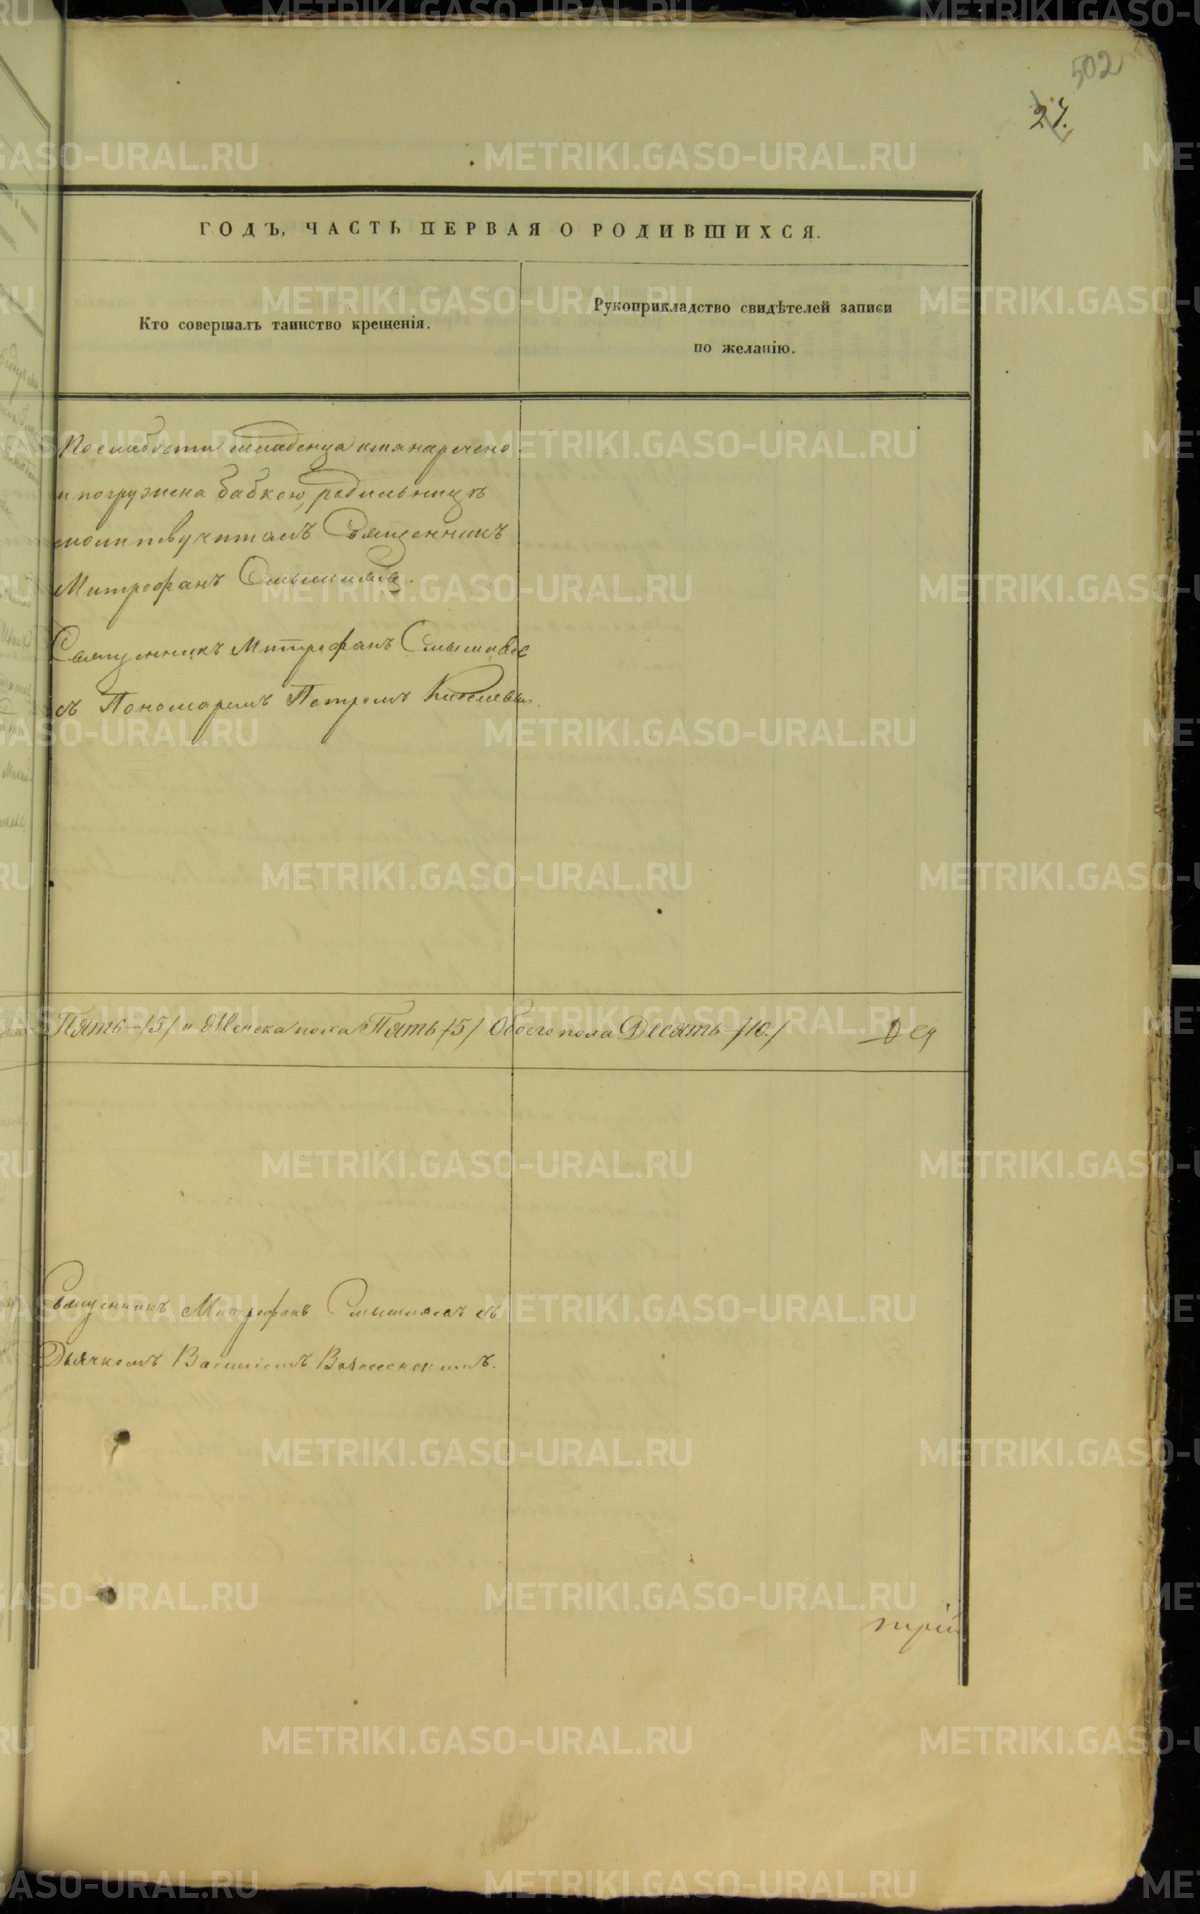 502
27.
ГОДЪ, ЧАСТЬ ПЕРВАЯ О РОДИВШИХСЯ.
Кто совершалъ таинство крещенія.
Рукоприкладство свидѣтелей записи
по желанію.
младенца имя наречено
и погружена бабкою, родильницѣ
молитву читалъ Священникъ
Митрофанъ Смышляевъ.
Священникъ Митрофанъ Смышляевъ
съ Пономаремъ Петромъ
Пять /5/ и Женска пола Пять /5/ Обоего пола Десять /10./
Священникъ Митрофанъ Смышляевъ съ
Дьячкомъ Василіемъ Вознесенскимъ.
трій
METRIKI.GASO-URAL.RU